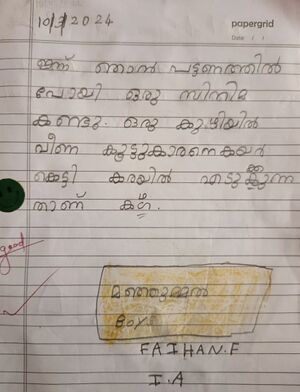 10/3/2024
papergrid
Date / /
ഇന്ന് ഞാൻ പട്ടണത്തിൽ
പോയി ഒരു സിനിമ
കണ്ടു. ഒരു കുഴിയിൽ
വീണ കൂട്ടുകാരനെ കയർ
കെട്ടി കരയിൽ എടുക്കുന്ന
താണ് കഥ.
good
മഞ്ഞുമ്മൽ
Boys
FAIHAN.F
I.A